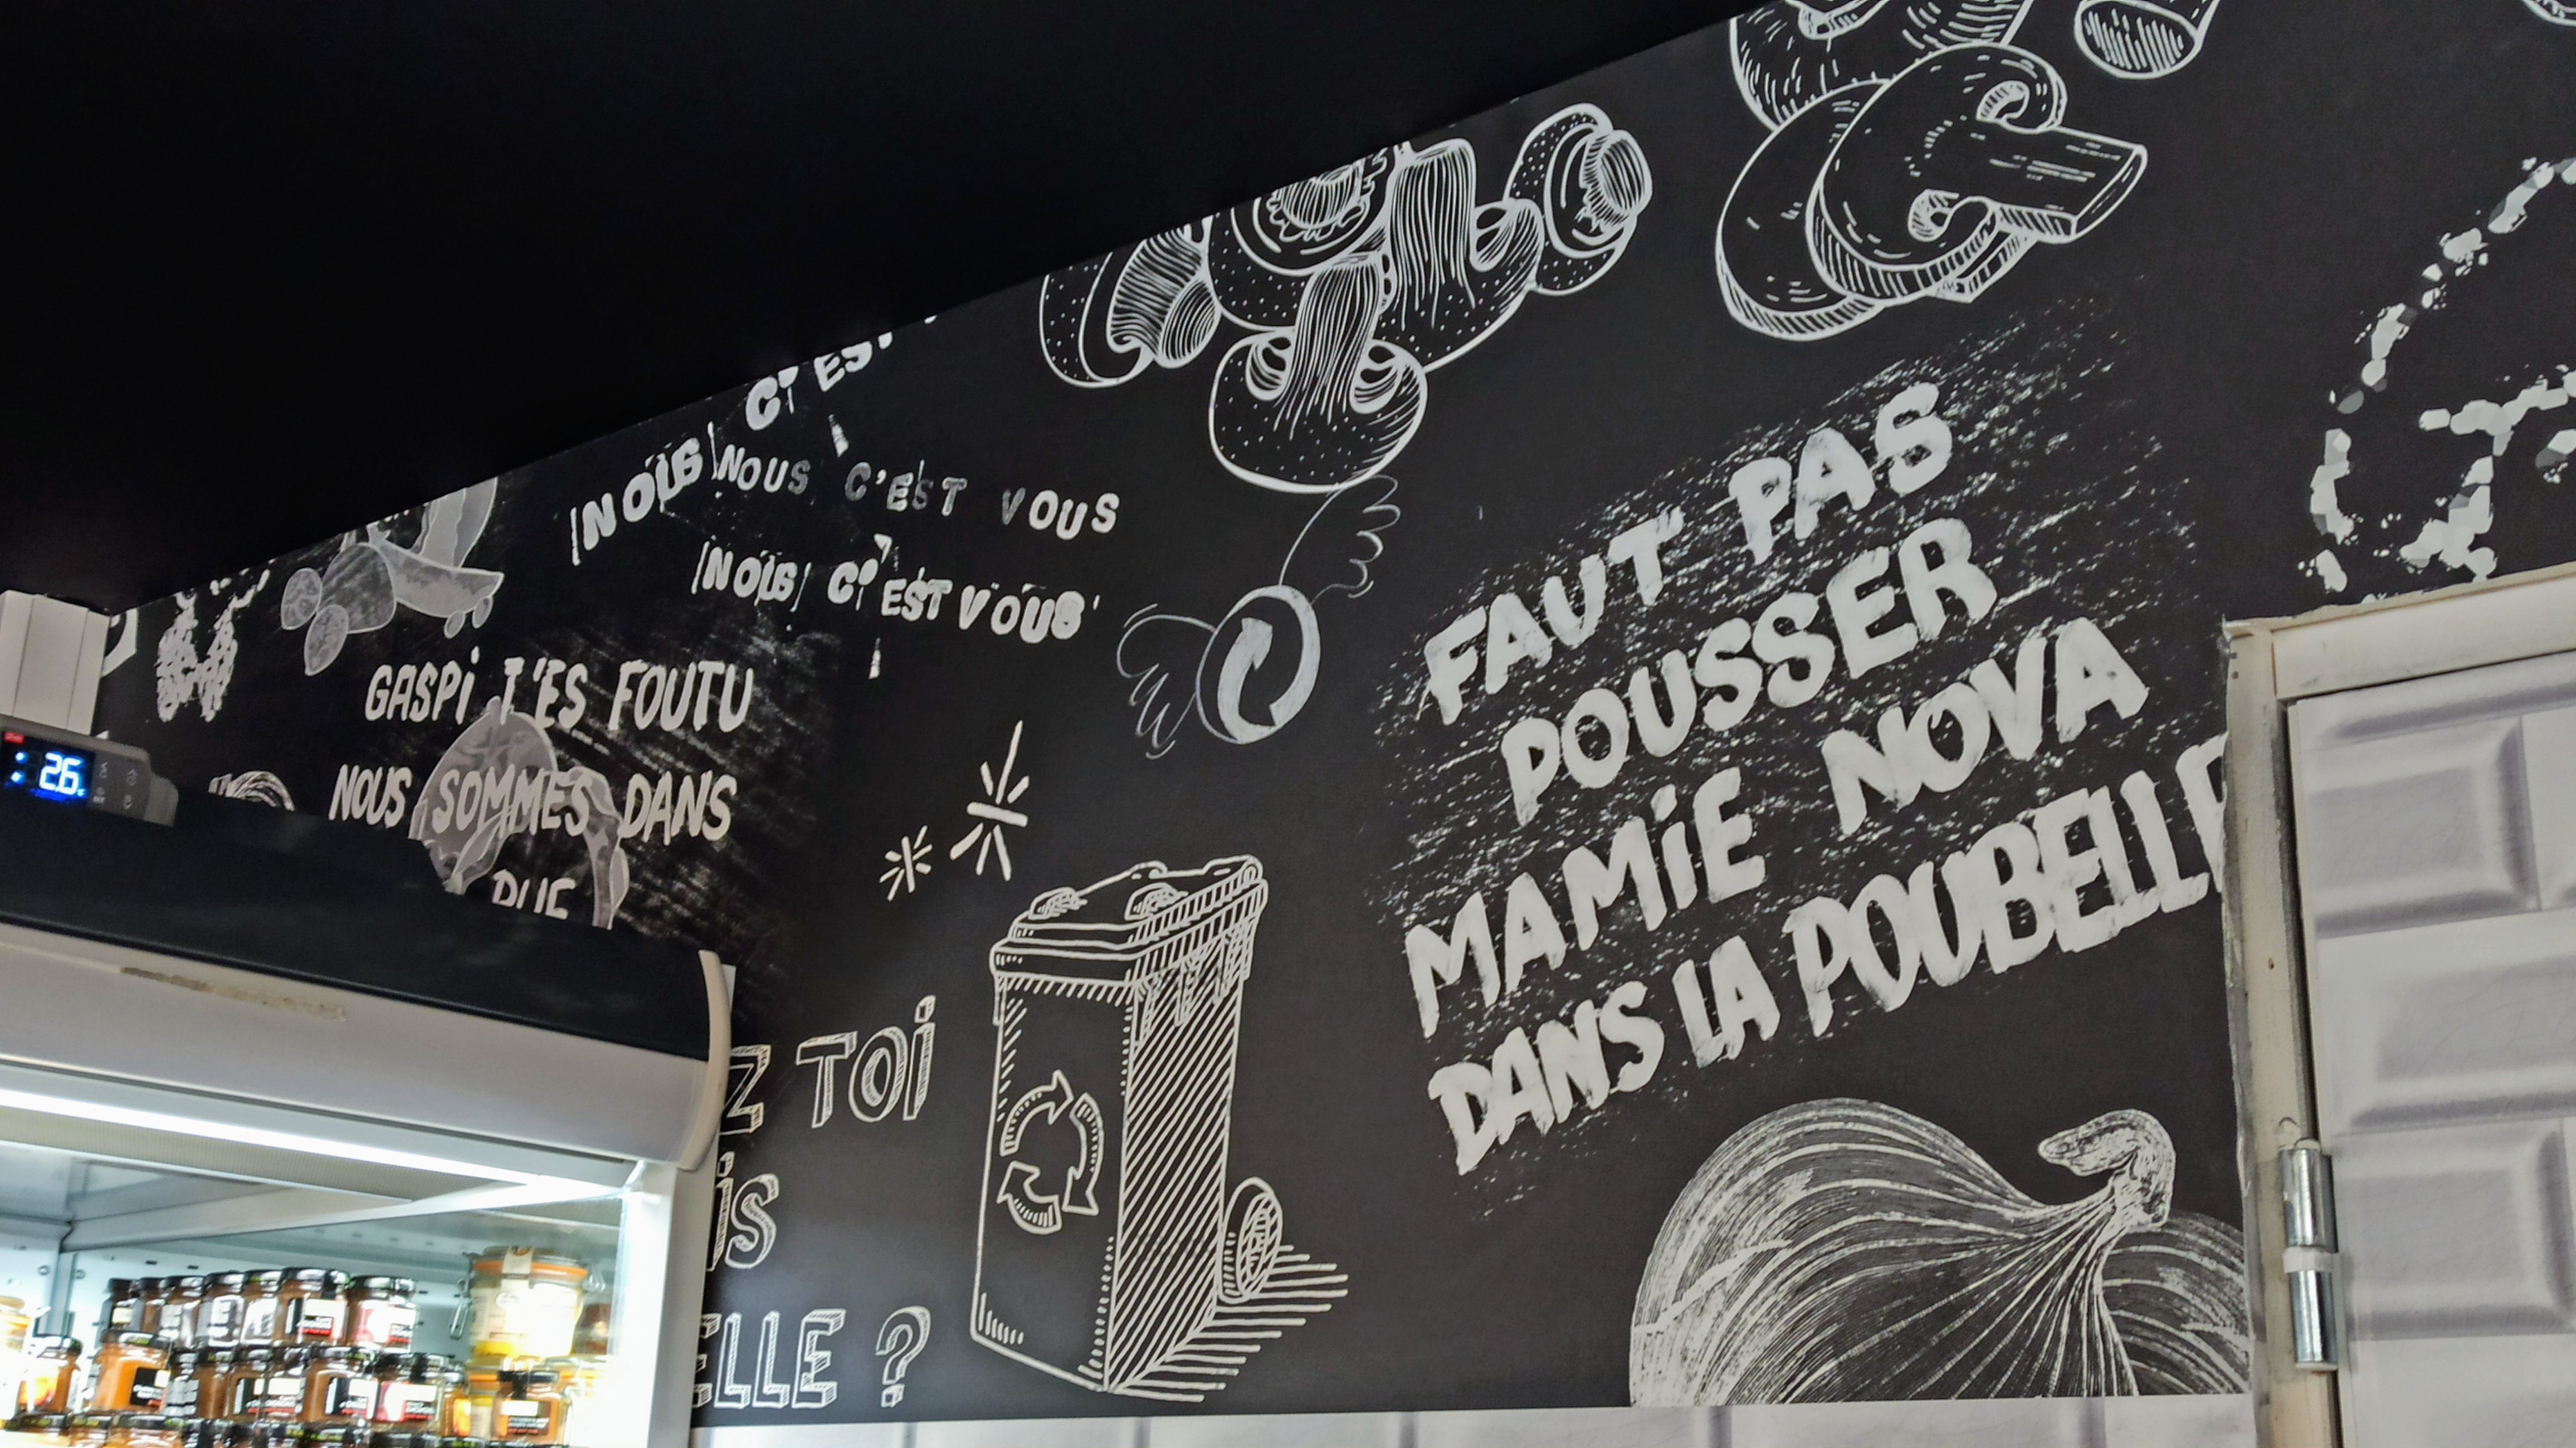 C'EST
NOUS
NOUS C'EST VOUS
NOUS C'EST VOUS
GASPi T'ES FOUTU
NOUS SOMMES DANS
FAUT PAS
POUSSER
MAMiE NOVA
DANS LA POUBELLE
Z TOi
iS
ELLE ?
26